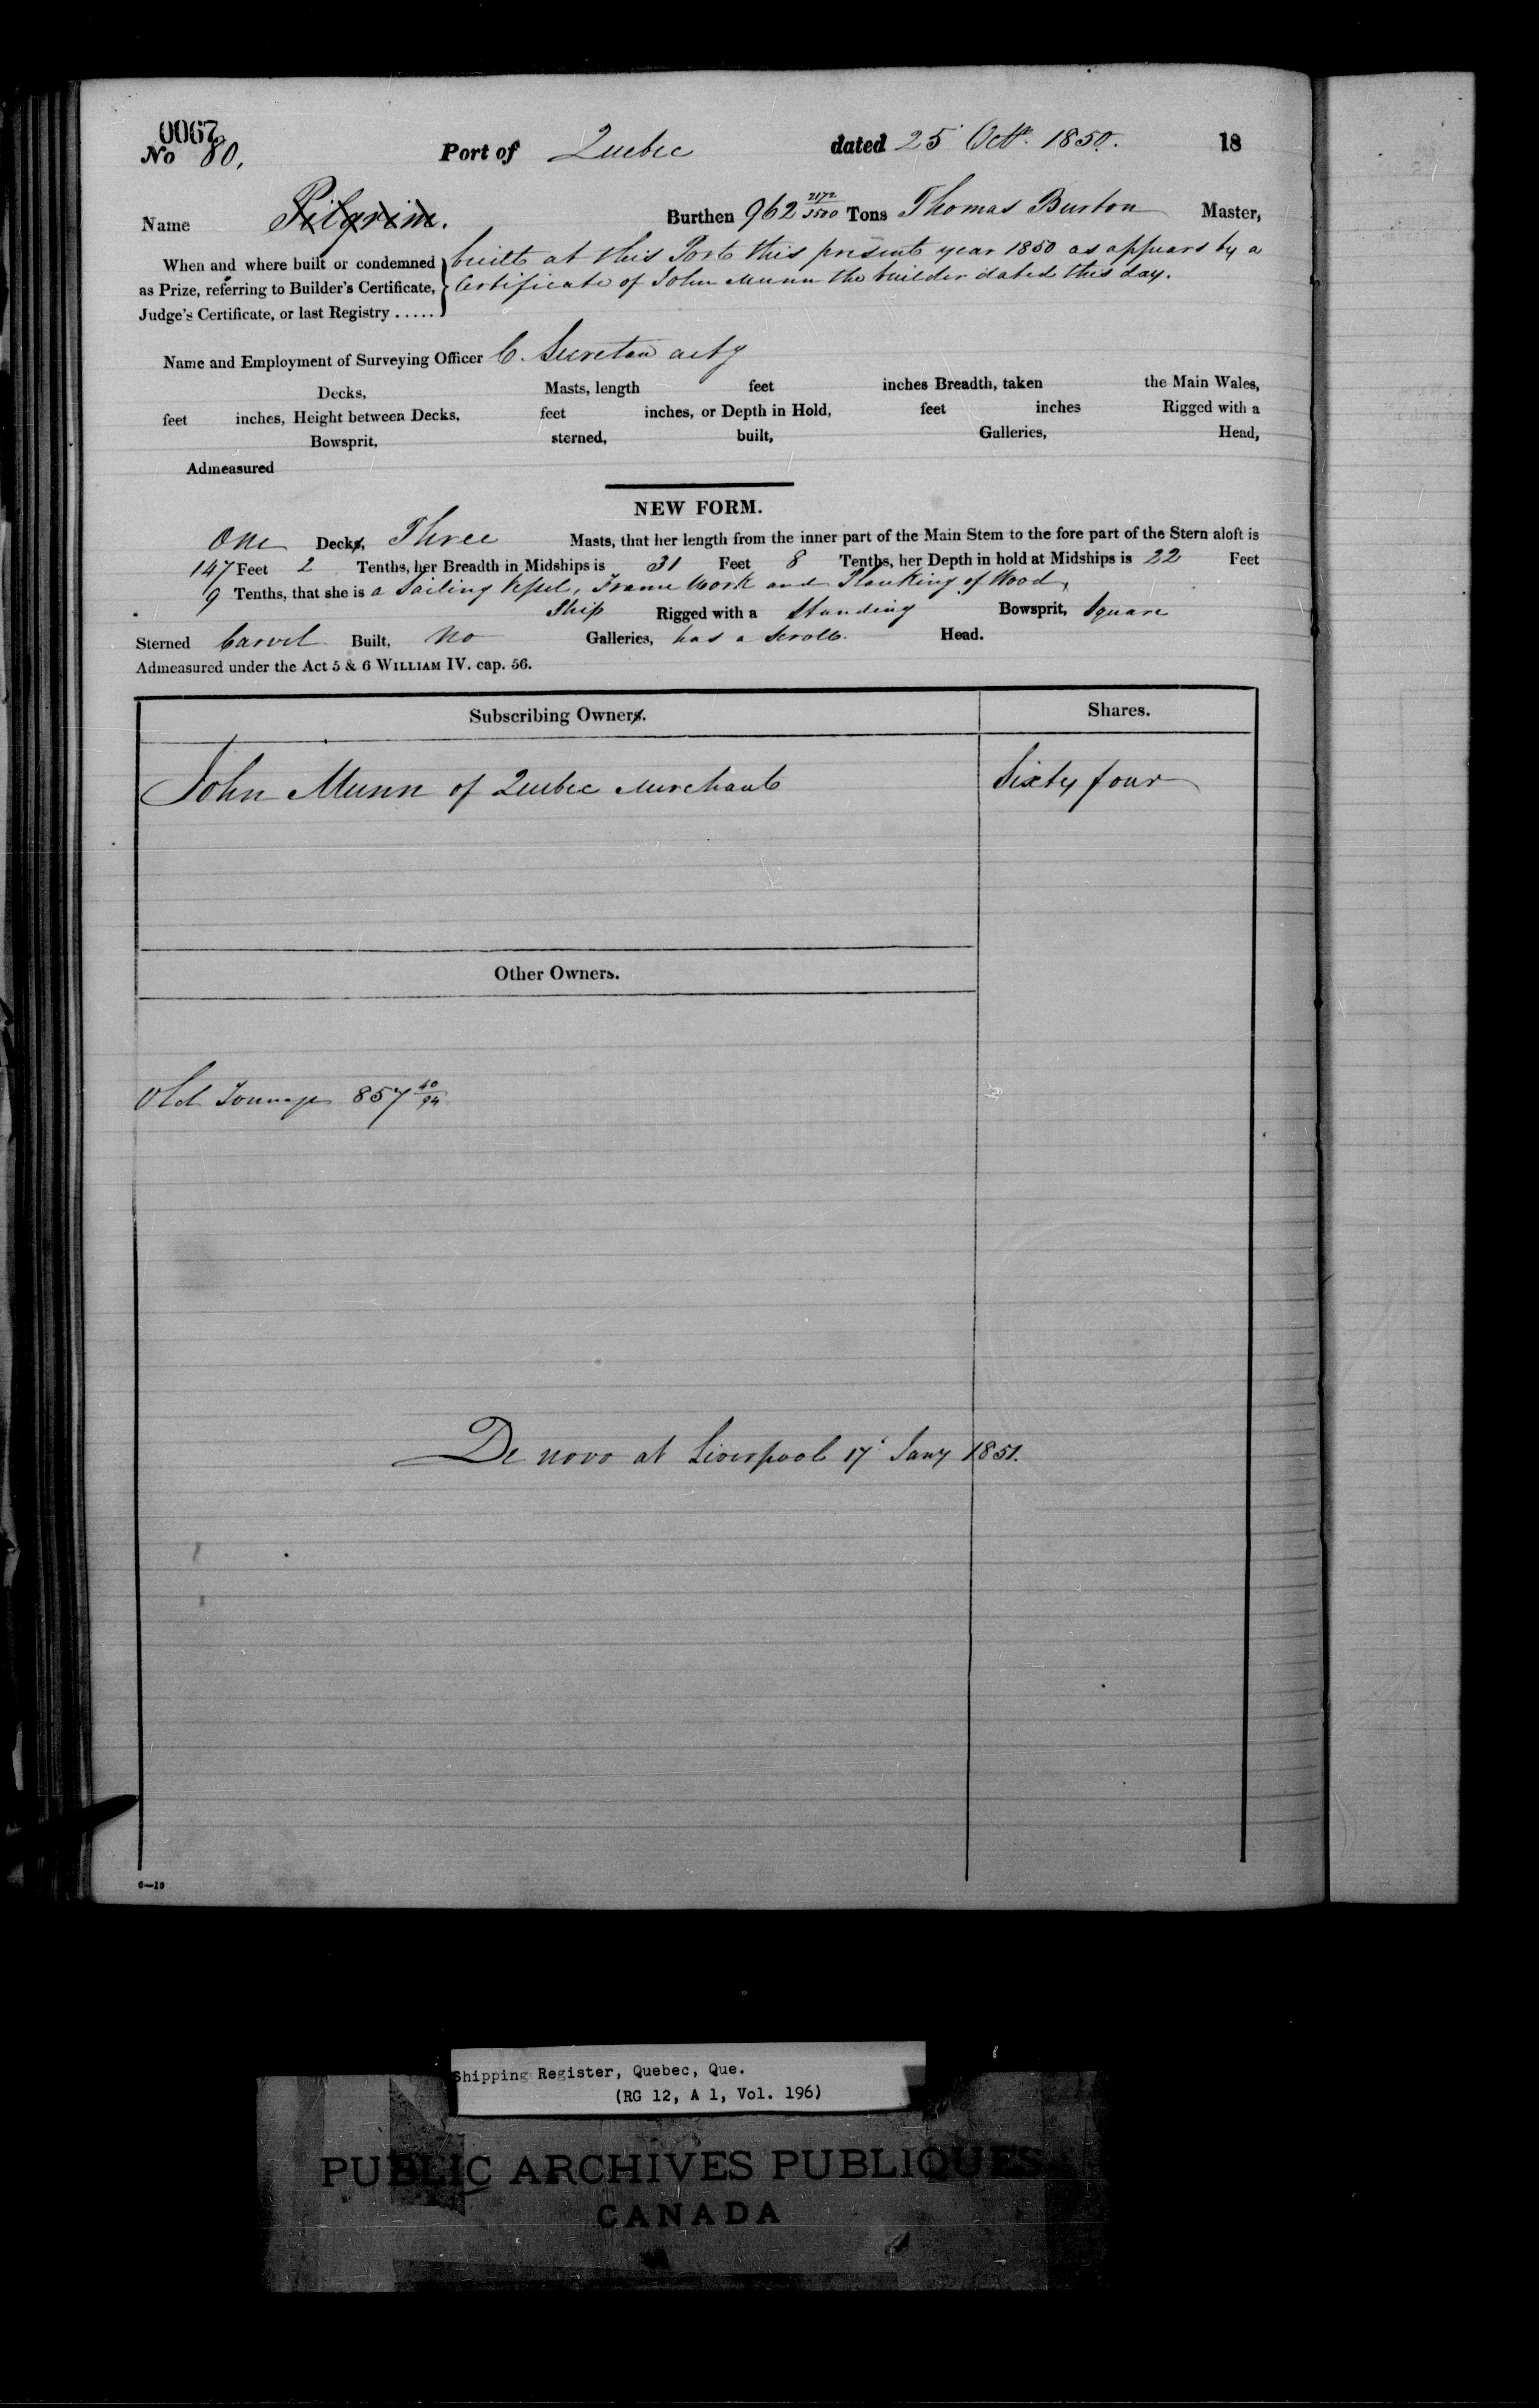 0067
No 80. Port of Quebec dated 25 Octr. 1850. 18
Name Pilgrim. Burthen 962 2172/3500 Tons Thomas Burton Master,
When and where built or condemned built at this Port this present year 1850 as appears by a
as Prize, referring to Builder's Certificate, Certificate of John Munn the builder dated this day.
Judge's Certificate, or last Registry .....
Name and Employment of Surveying Officer C. Secretan actg
Decks, Masts, length feet inches Breadth, taken the Main Wales,
feet inches, Height between Decks, feet inches, or Depth in Hold, feet inches Rigged with a
Bowsprit, sterned, built, Galleries, Head,
Admeasured
NEW FORM.
One Decks, Three Masts, that her length from the inner part of the Main Stem to the fore part of the Stern aloft is
147 Feet 2 Tenths, her Breadth in Midships is 31 Feet 8 Tenths, her Depth in hold at Midships is 22 Feet
9 Tenths, that she is a Sailing Vessel, Frame Work and Planking of Wood,
Ship Rigged with a Standing Bowsprit, Square
Sterned Carvel Built, No Galleries, has a Scroll Head.
Admeasured under the Act 5 & 6 WILLIAM IV. cap. 56.
Subscribing Owners. Shares.
John Munn of Quebec Merchant Sixty four
Other Owners.
Old Tonnage 857 40/94
De novo at Liverpool 17 Jany 1851.
6—10
Shipping Register, Quebec, Que.
(RG 12, A 1, Vol. 196)
PUBLIC ARCHIVES PUBLIQUES
CANADA